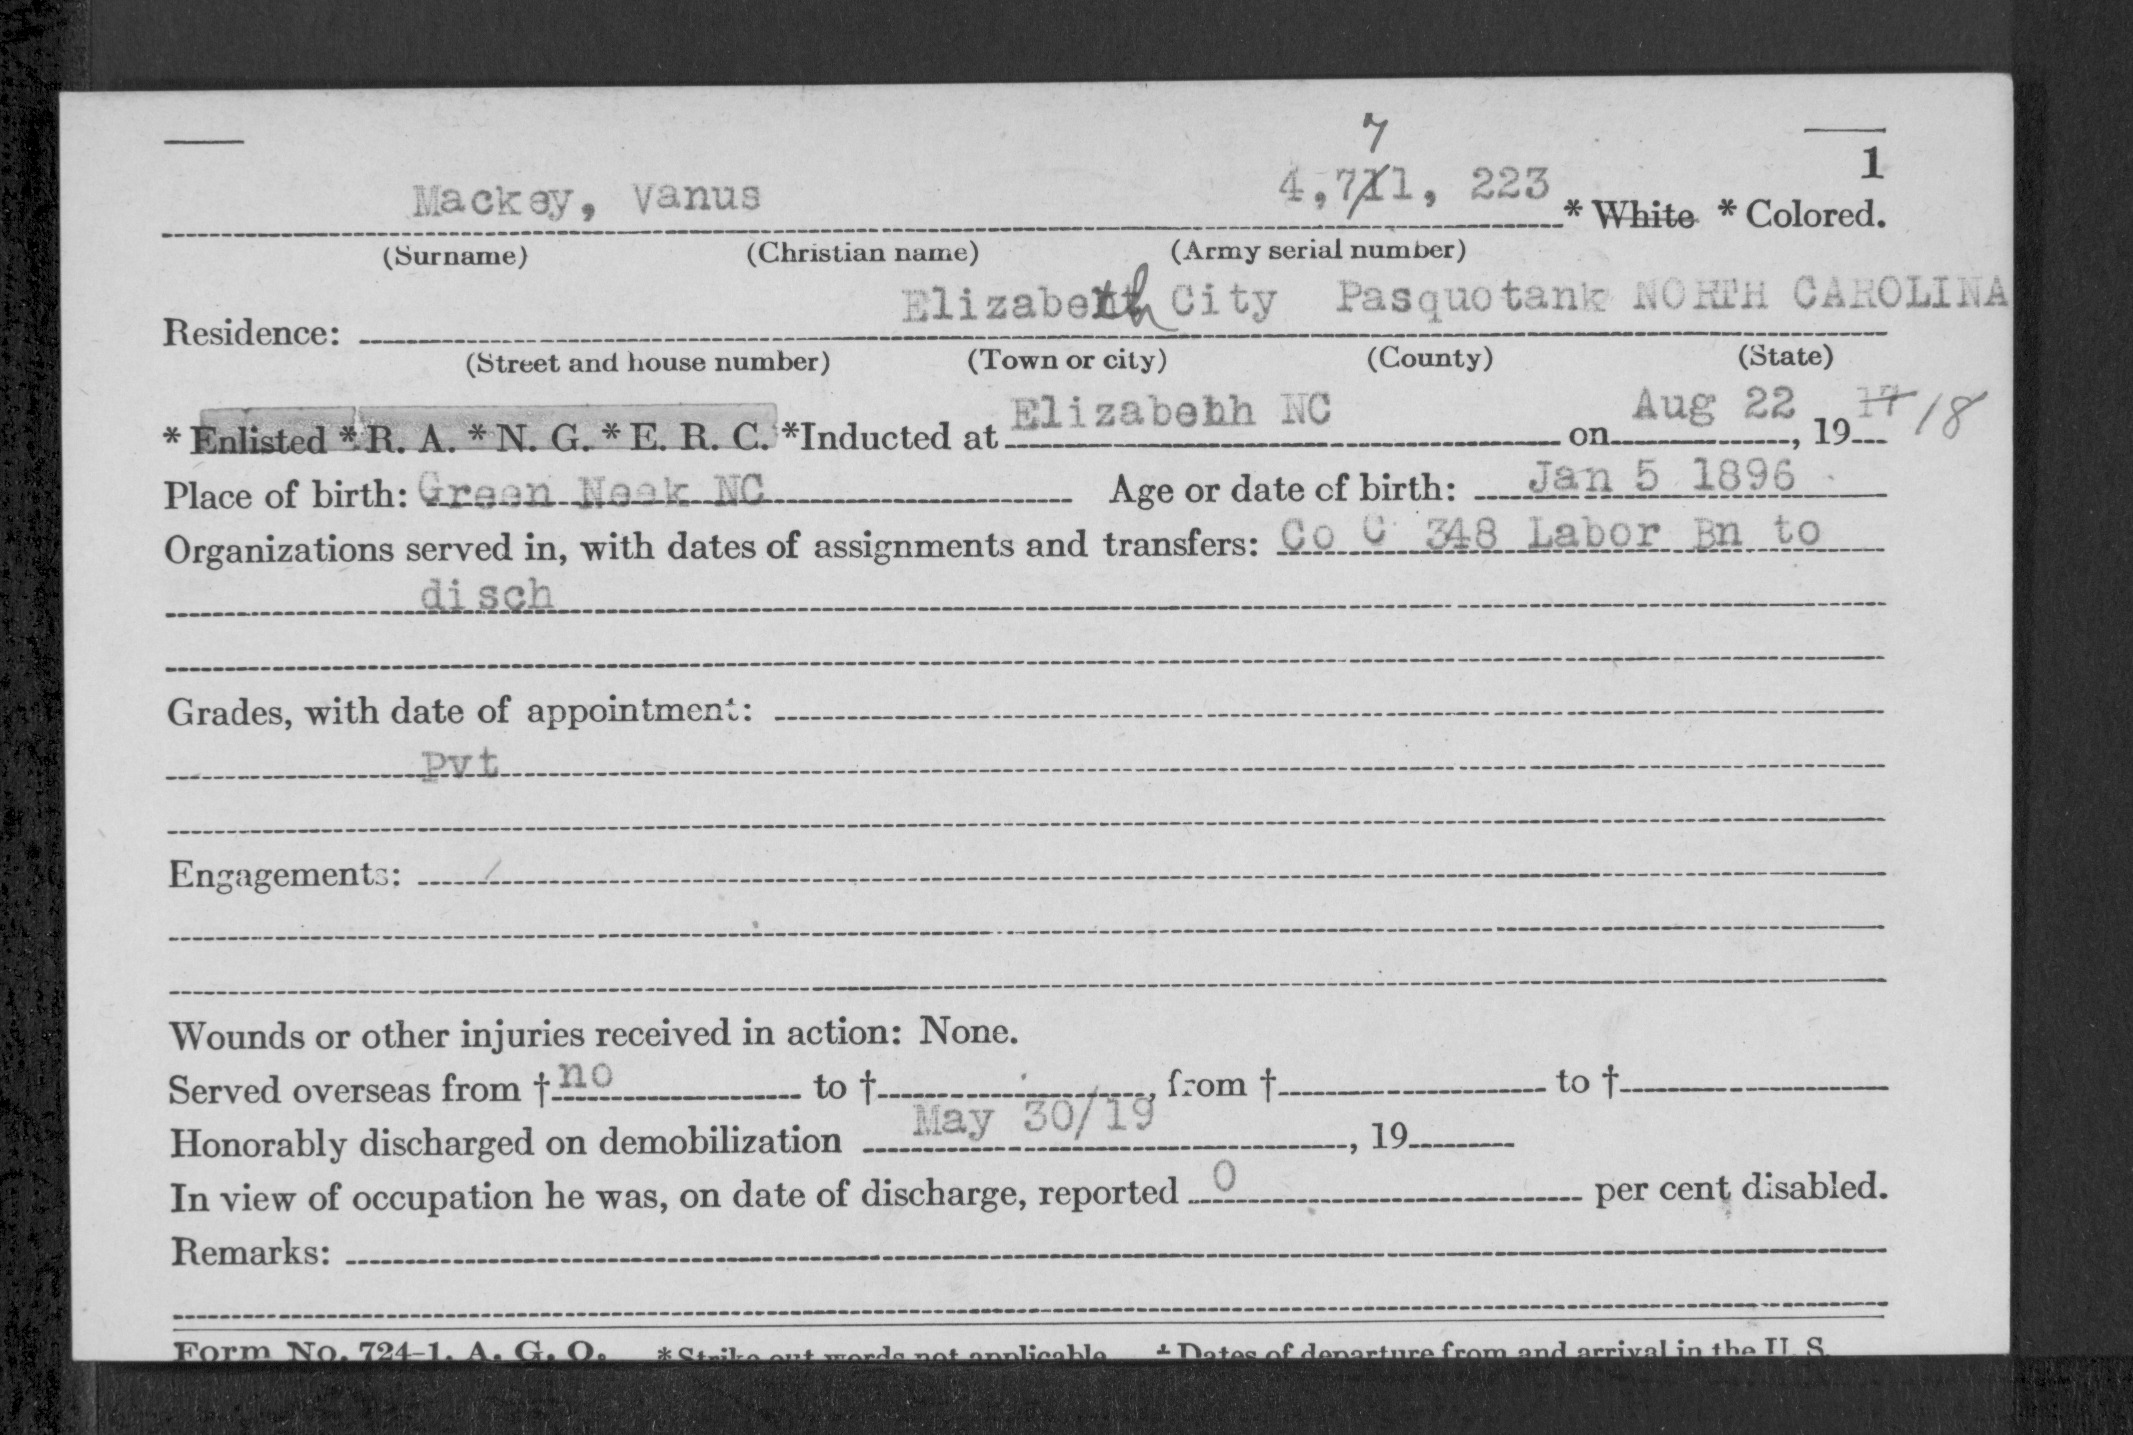 7
1
Mackey, Vanus 4,711, 223 * White * Colored.
(Surname) (Christian name) (Army serial number)
Elizabeth City Pasquotank NORTH CAROLINA
Residence:
(Street and house number) (Town or city) (County) (State)
* Enlisted * R. A. * N. G. * E. R. C. *Inducted at Elizabehh NC on Aug 22, 19 17 18
Place of birth: Green Neek NC Age or date of birth: Jan 5 1896
Organizations served in, with dates of assignments and transfers: Co C 348 Labor Bn to
disch
Grades, with date of appointment:
Pvt
Engagements:
Wounds or other injuries received in action: None.
Served overseas from † no to † , from † to †
Honorably discharged on demobilization May 30/19 , 19
In view of occupation he was, on date of discharge, reported 0 per cent disabled.
Remarks:
Form No. 724-1, A. G. O. * Strike out words not applicable. † Dates of departure from and arrival in the U. S.